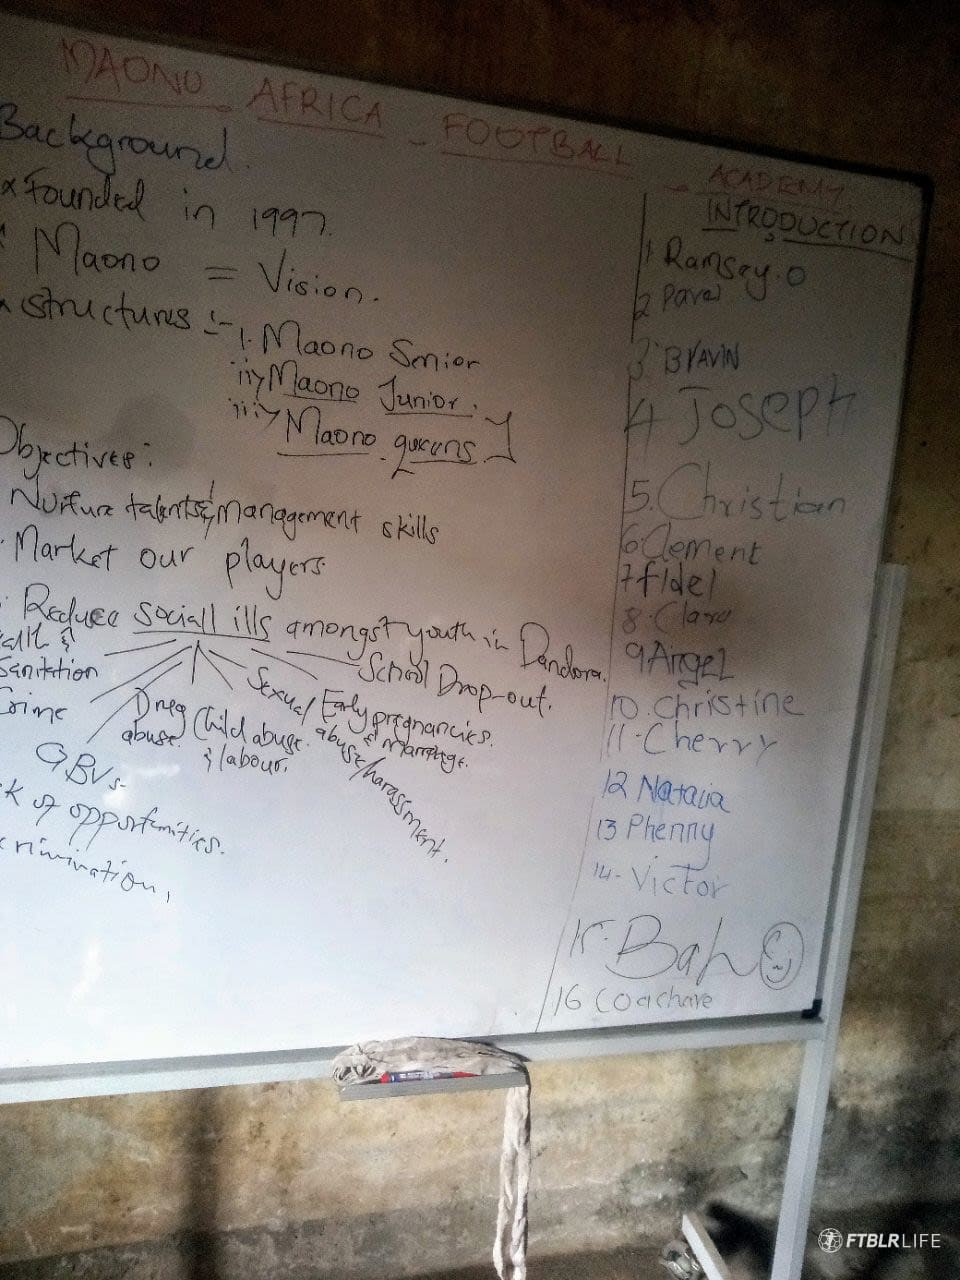 MAONO AFRICA - FOOTBALL - ACADEMY
Background.
x Founded in 1997.
Maono = Vision.
x structures :- 1. Maono Senior
ii> Maono Junior.
iii> Maono queens.
Objectives:
Nurture talents & management skills
Market our players.
Reduce sociall ills amongst youth in Dandora.
Sanitation
Crime
GBVs
k of opportunities.
crimination,
Drug abuse.
Child abuse & labour.
Sexual abuse/harassment.
Early pregnancies & marriage.
School Drop-out.
INTRODUCTION
1 Ramsey.O
2 Pavel
3. BRAVIN
4 JOSEPH
5. Christian
6 Clement
7 fidel
8. Clara
9 Angel
10. Christine
11. Cherry
12 Natalia
13 Phenny
14- Victor
15. Bah
16 Coachave
FTBLRLIFE